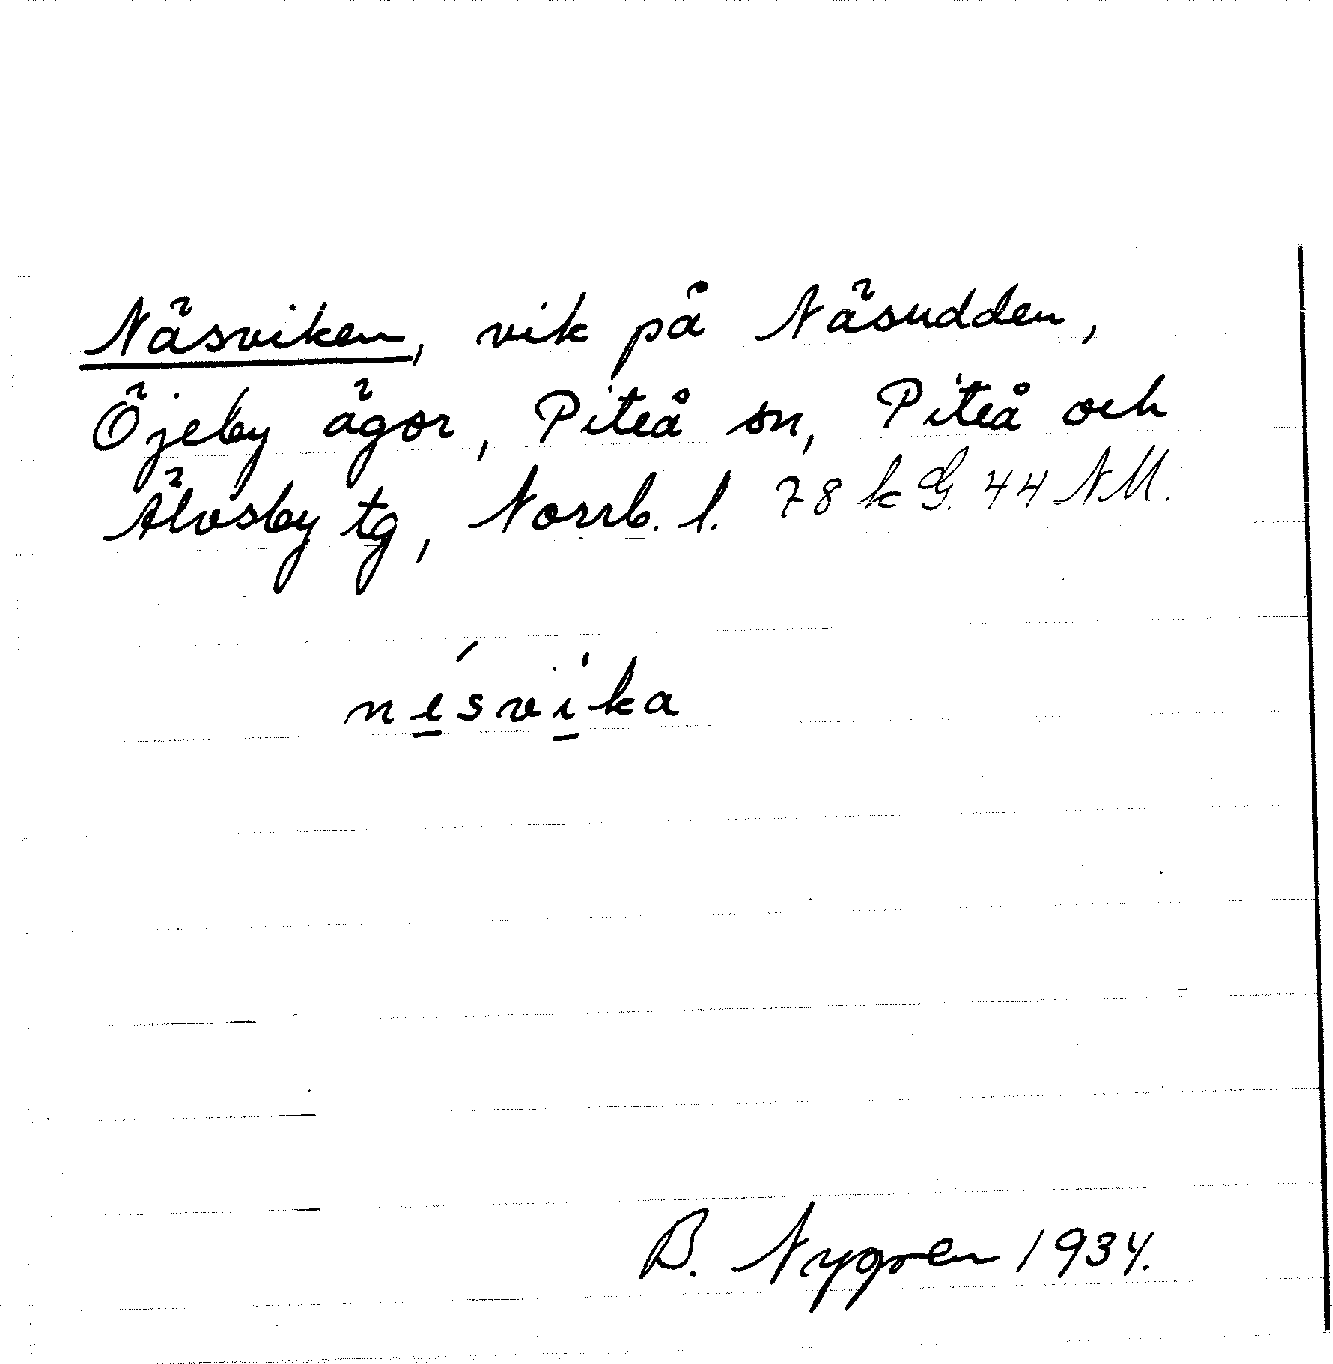 Näsviken, vik på Näsudden,
Öjeby ägor, Piteå sn, Piteå och
Älvsby tg, Norrb. l. 78 k G. 44 NM.
nésvíka
B. Nygren 1934.